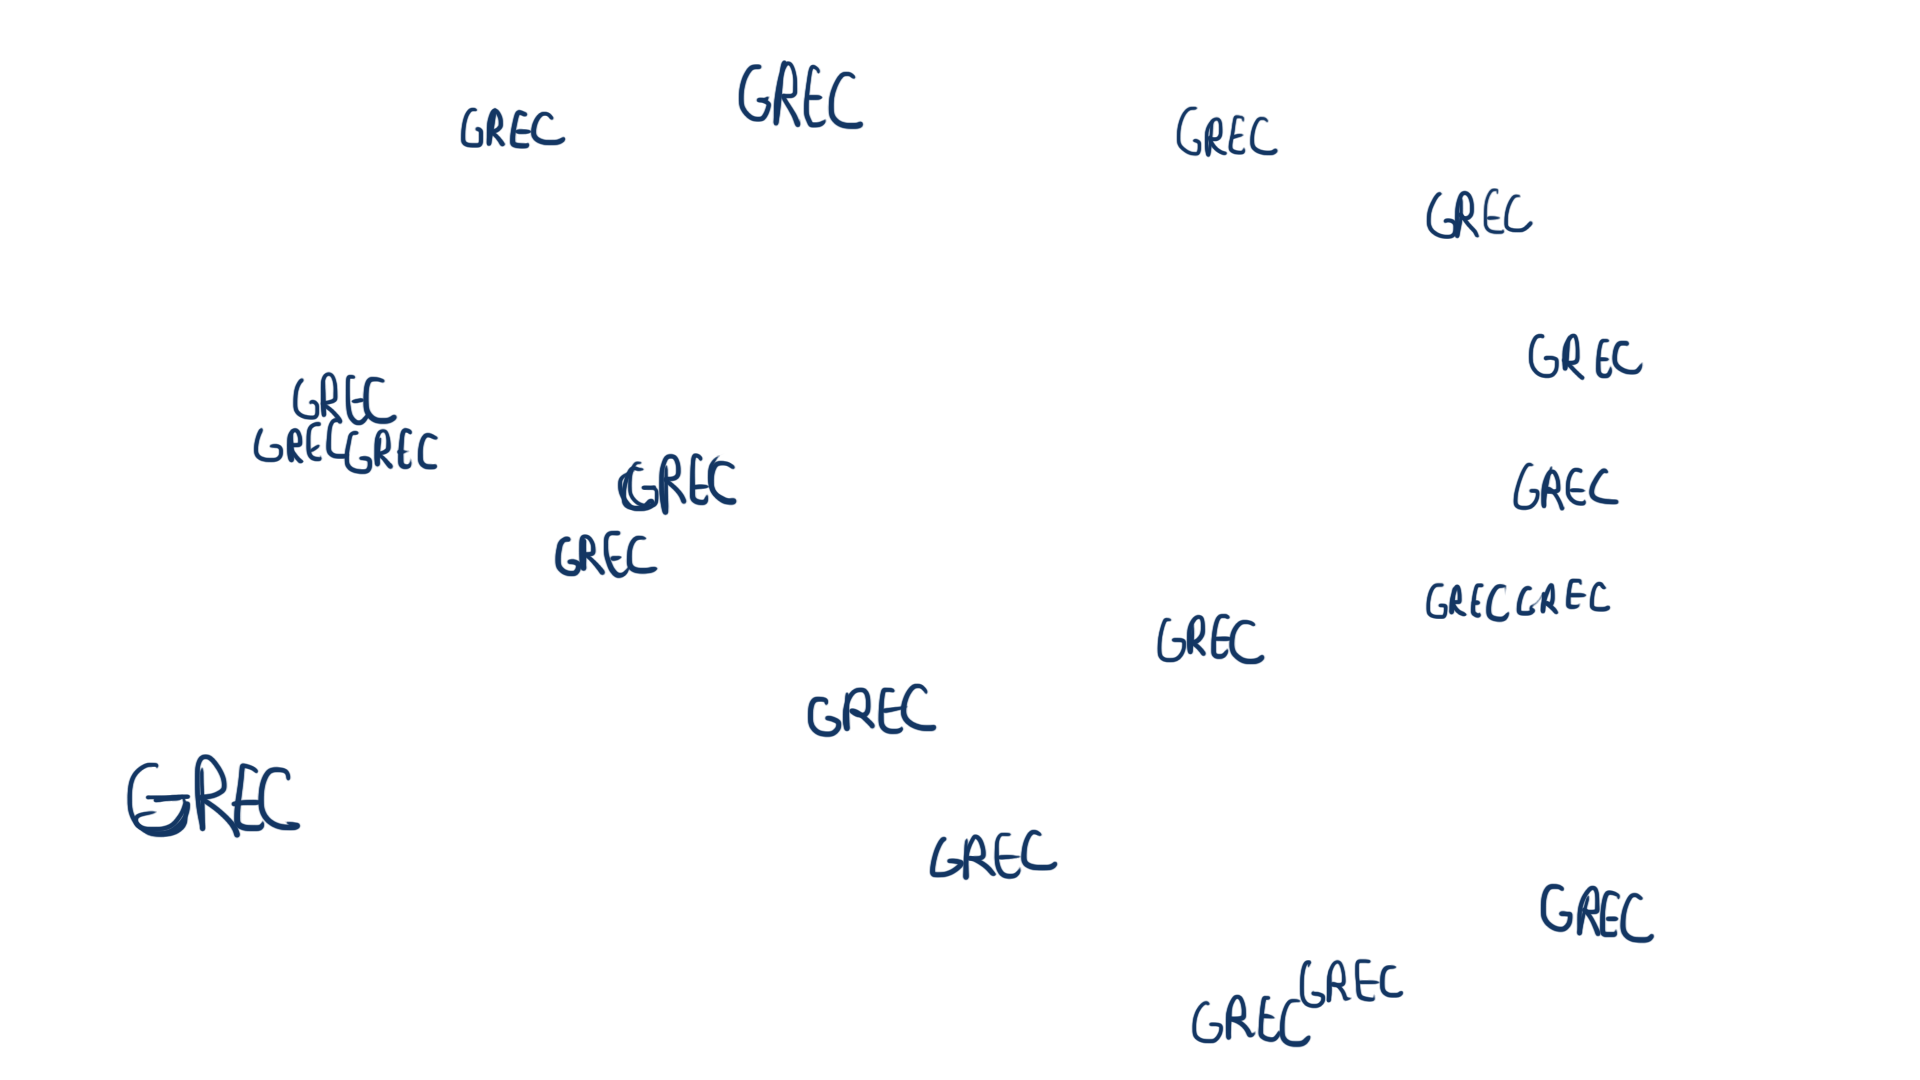 GREC
GREC
GREC
GREC
GREC
GREC
GREC GREC
GREC
GREC
GREC
GREC GREC
GREC
GREC
GREC
GREC
GREC
GREC
GREC